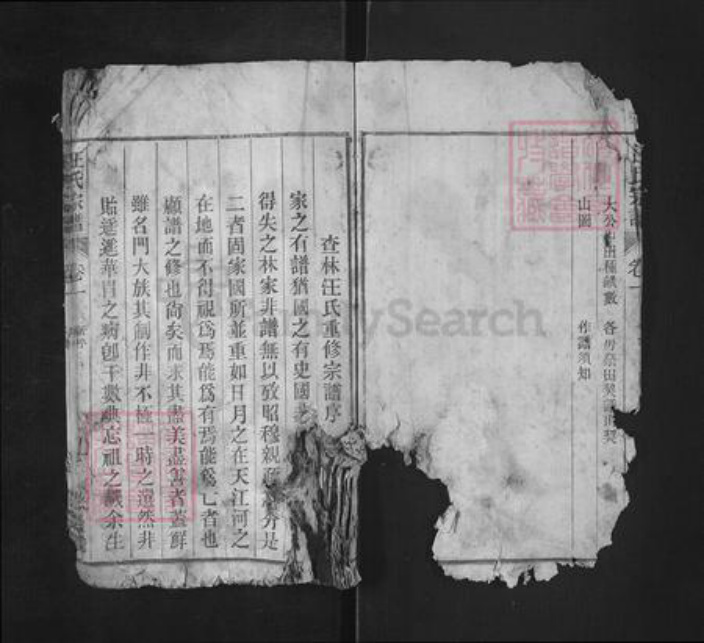 大公山出種畝數
各房祭田契
山圖
作譜須知
查林汪氏重修宗譜序
家之有譜猶國之有史國
得失之林家非譜無以攷昭穆親分是
二者固家國所並重如日月之在天江河之
在地而不得視爲焉能爲有焉能爲亡者也
顧譜之修也尙矣而求其盡美盡善者葢鮮
雖名門大族其制作非不極一時之然非
貽遙遙華冑之病卽干數典忘祖之譏余生
汪氏宗譜
卷一
FamilySearch